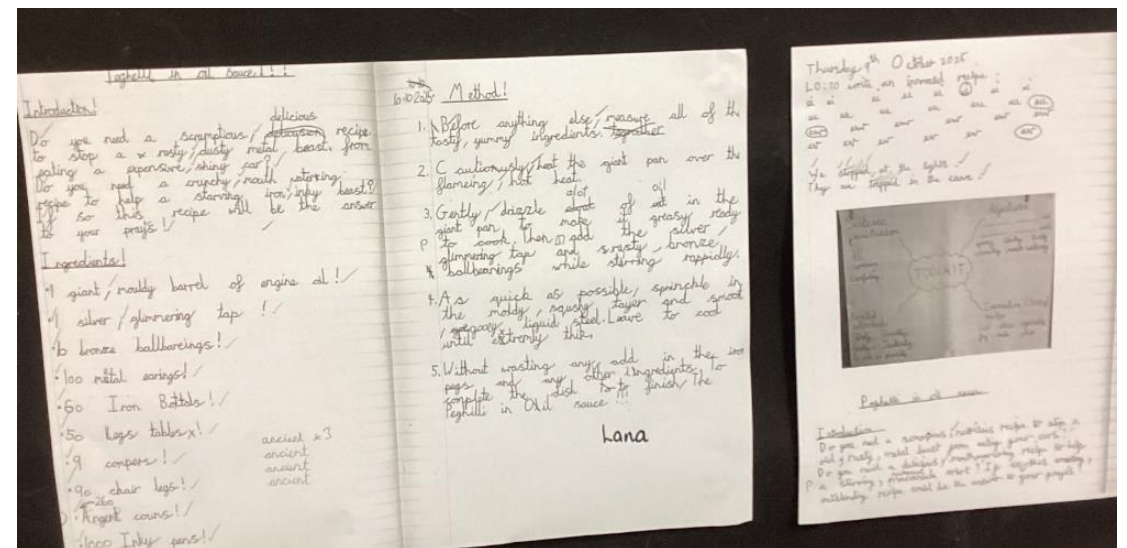 Peghelli in oil sauce!!!
Introduction!
delicious
Do you need a scrumptious, recipe
to stop a rusty, dusty metal beast from
eating a expensive, shiny car?
Do you need a crunchy, mouth watering
recipe to help a starving iron, inky beast?
If so this recipe will be the answer
to your prays!
Ingredients!
•1 giant, mouldy barrel of engine oil!
•1 silver, glimmering tap!
bronze ballbareings!
•100 metal earings!
•60 Iron Bottals!
•50 legs tables!
•9 compers!
•90 chair legs!
260
Argent couns!
•1000 Inky pens!
ancient x3
ancient
ancient
ancient
10.10.2025 Method!
1. Before anything else, measure all of the
tasty, yummy ingredients. together
2. Cautiously, heat the giant pan over the
flameing, hot heat.
3. Gently, drizzle alot of oil in the
giant pan to make it greasy ready
P to cook. Then add the silver,
glimmering tap and rusty, bronze,
ballbearings while stirring rappidly.
4. As quick as possible, sprinkle in
the moldy, squshy tayer and smoot
, gooey, liquid steel. Leave to cool
until extremly thik.
5. Without wasting any, add in the iron
pegs and any other ingredients. To
complete the dish to finish The
Peghilli in Oil sauce!!!
Lana
Thursday 9th October 2025
LO: to write an recipe.
We stopped at the lights.
They are trapped in the cave.
TOOLKIT
Peghelli in oil sauce
Introduction
Do you need a scrumptious, nutritious recipe to stop a
old, rusty, metal beast from eating your cars?
Do you need a delicious, mouthwatering recipe to help
P a starving, robot? If so, this amazing,
outstanding recipe could be the answer to your prayers!